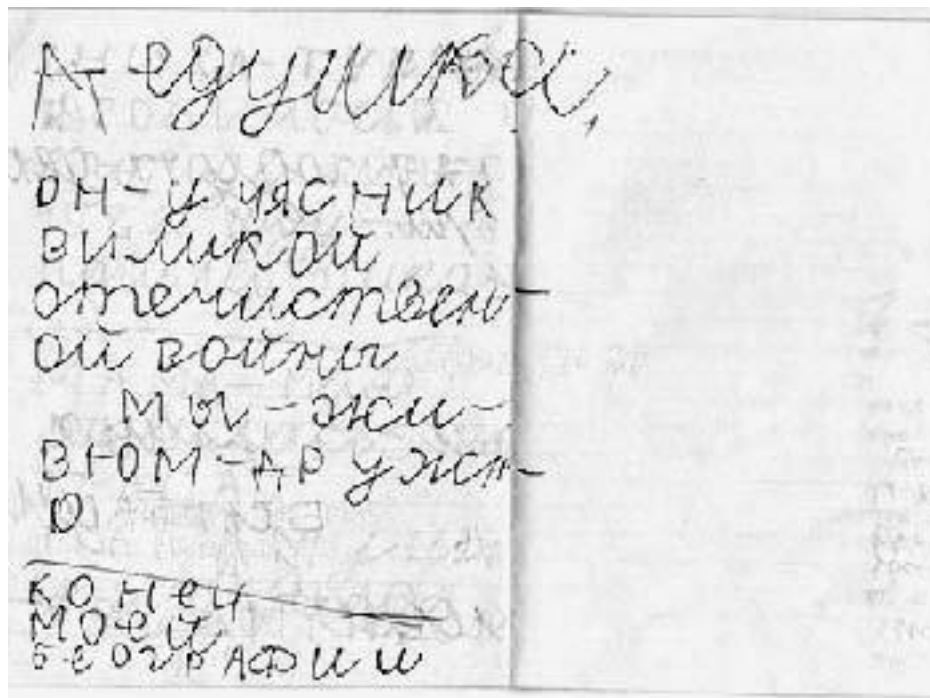 Дедушка,
он-учясник
виликой
отечиствен-
ой войны
мы-жи-
вюм-дружн-
о
конец
моей
беографии